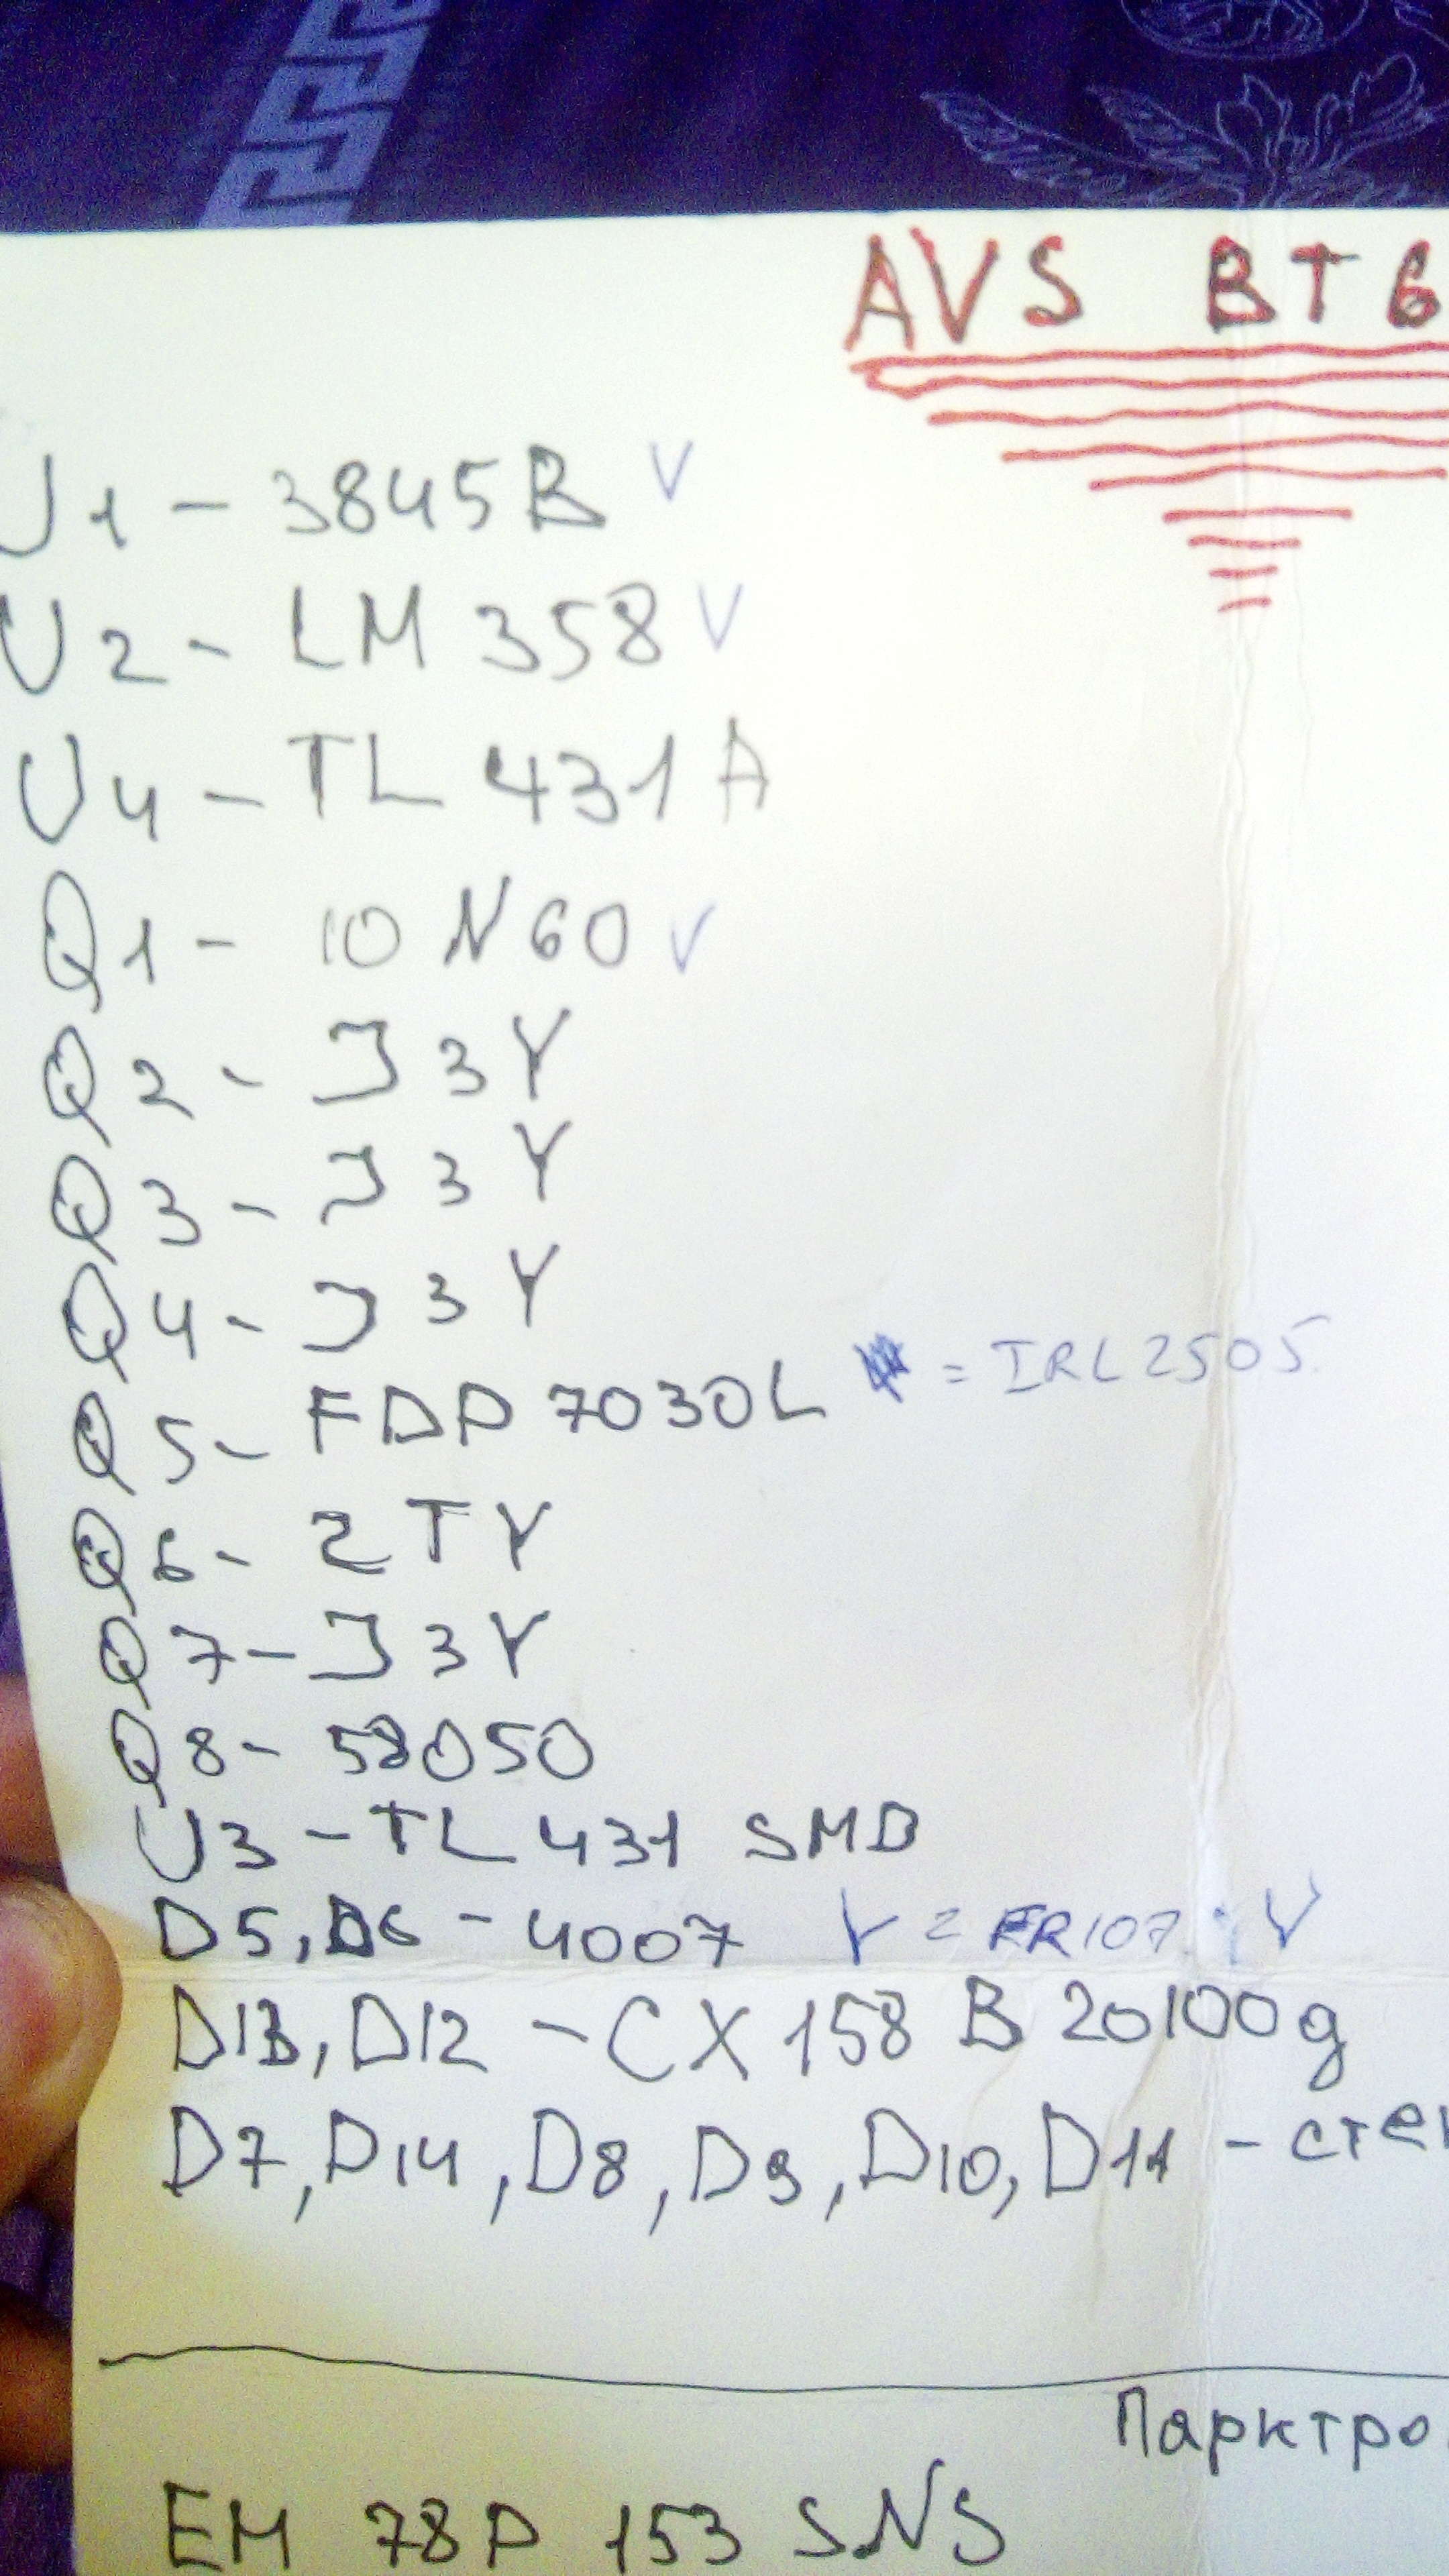 AVS BT6
U1 - 3845B V
U2 - LM 358 V
U4 - TL 431 A
Q1 - 10 N60 V
Q2 - J3Y
Q3 - J3Y
Q4 - J3Y
Q5 - FDP 7030L = IRL2505.
Q6 - 2TY
Q7 - J3Y
Q8 - S8050
U3 - TL 431 SMD
D5, D6 - 4007 V = FR107 V
D13, D12 - CX 158 B 20100g
D7, D14, D8, D9, D10, D11 -
EM 78P 153 SNS